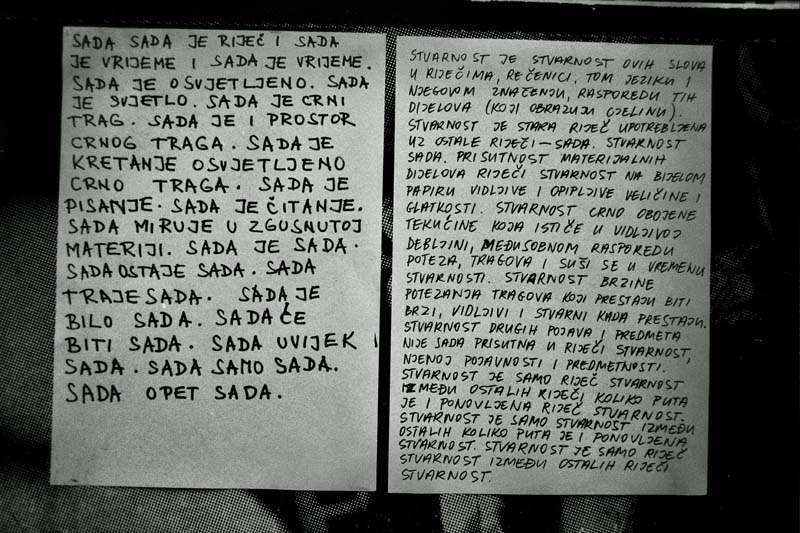 SADA SADA JE RIJEČ I SADA
JE VRIJEME I SADA JE VRIJEME.
SADA JE OSVJETLJENO. SADA
JE SVJETLO. SADA JE CRNI
TRAG. SADA JE I PROSTOR
CRNOG TRAGA. SADA JE
KRETANJE OSVJETLJENO
CRNO TRAGA. SADA JE
PISANJE. SADA JE ČITANJE.
SADA MIRUJE U ZGUSNUTOJ
MATERIJI. SADA JE SADA.
SADA OSTAJE SADA. SADA
TRAJE SADA. SADA JE
BILO SADA. SADA ĆE
BITI SADA. SADA UVIJEK I
SADA. SADA SAMO SADA.
SADA OPET SADA.
STVARNOST JE STVARNOST OVIH SLOVA
U RIJEČIMA, REČENICI, TOM JEZIKU I
NJEGOVOM ZNAČENJU, RASPOREDU TIH
DIJELOVA (KOJI OBRAZUJU CJELINU).
STVARNOST JE STARA RIJEČ UPOTREBLJENA
UZ OSTALE RIJEČI – SADA. STVARNOST
SADA. PRISUTNOST MATERIJALNIH
DIJELOVA RIJEČI STVARNOST NA BIJELOM
PAPIRU VIDLJIVE I OPIPLJIVE VELIČINE I
GLATKOSTI. STVARNOST CRNO OBOJENE
TEKUČINE KOJA ISTIČE U VIDLJIVOJ
DEBLJINI, MEĐUSOBNOM RASPOREDU
POTEZA, TRAGOVA I SUŠI SE U VREMENU
STVARNOSTI. STVARNOST BRZINE
POTEZANJA TRAGOVA KOJI PRESTAJU BITI
BRZI, VIDLJIVI I STVARNI KADA PRESTAJU.
STVARNOST DRUGIH POJAVA I PREDMETA
NIJE SADA PRISUTNA U RIJEČI STVARNOST,
NJENOJ POJAVNOSTI I PREDMETNOSTI.
STVARNOST JE SAMO RIJEČ STVARNOST
IZMEĐU OSTALIH RIJEČI KOLIKO PUTA
JE I PONOVLJENA RIJEČ STVARNOST.
STVARNOST JE SAMO STVARNOST IZMEĐU
OSTALIH KOLIKO PUTA JE I PONOVLJENA
STVARNOST. STVARNOST JE SAMO RIJEČ
STVARNOST IZMEĐU OSTALIH RIJEČI
STVARNOST.